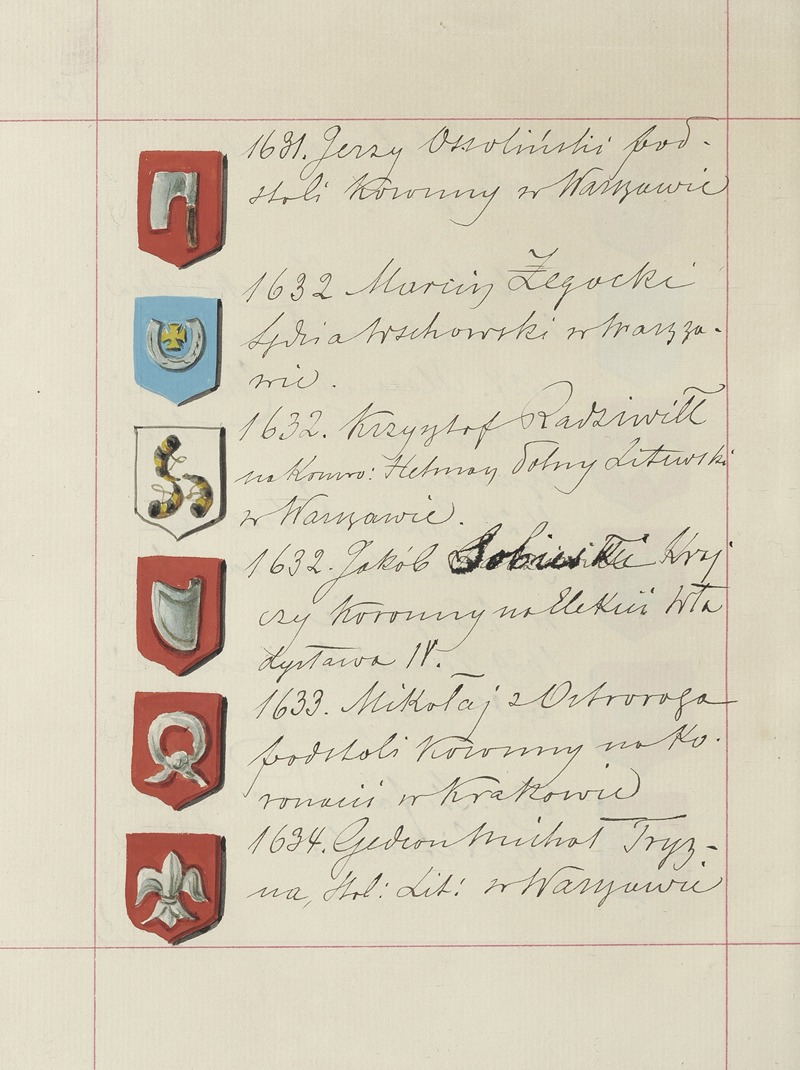 1631. Jerzy Ossoliński pod-
stoli Koronny w Warszawie
1632 Marcin Żegocki
Sędzia Wschowski w Warsza-
wie.
1632. Krzysztof Radziwiłł
na Konwo: Hetman Polny Litewski
w Warszawie.
1632. Jakób Sobieski Kraj
czy Koronny na Elekcii Wła
dysława IV.
1633. Mikołaj z Ostroroga
podstoli Koronny na Ko-
ronacii w Krakowie
1634. Gedeon Michał Tryz-
na, Stol: Lit: w Warszawie